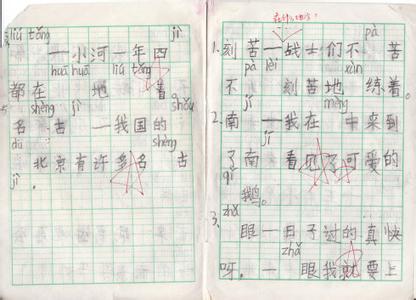 liú tǎng jì
一小河一年四
huā huā liú tǎng
都在 地 着。
shèng jī shǒu
名 古 一我国的
dū shèng
北京有许多名 古
jì 。
在什么地方?
pà
1. 刻苦一战士们不 苦
pà lèi xùn
不 刻苦地 练着。
jī mèng
2. 南一我在 中来到
jī
了南 看见了可爱的
qǐ
鹅。
zhǎ
3. 眼一日子过的真快
zhǎ
呀。一眼我就要上